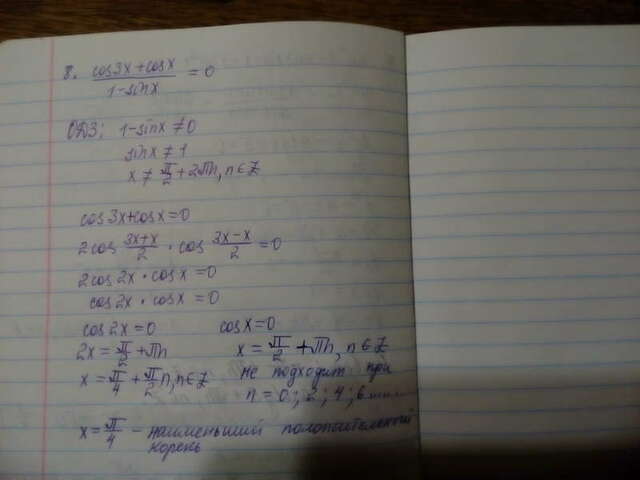 8. (cos3x+cosx)/(1-sinx) = 0
ОДЗ: 1-sinx ≠ 0
sinx ≠ 1
x ≠ π/2 + 2πn, n ∈ Z
cos3x+cosx=0
2cos (3x+x)/2 · cos (3x-x)/2 = 0
2cos2x · cosx = 0
cos2x · cosx = 0
cos2x = 0 cosx = 0
2x = π/2 + πn x = π/2 + πn, n ∈ Z
x = π/4 + π/2 n, n ∈ Z не подходит при
n = 0; 2; 4; 6
x = π/4 - наименьший положительный
корень